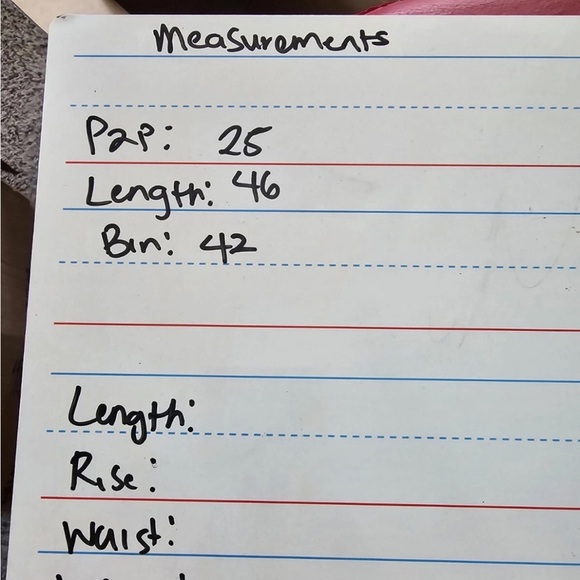 Measurements
P2P: 25
Length: 46
Bin: 42
Length:
Rise:
Waist: